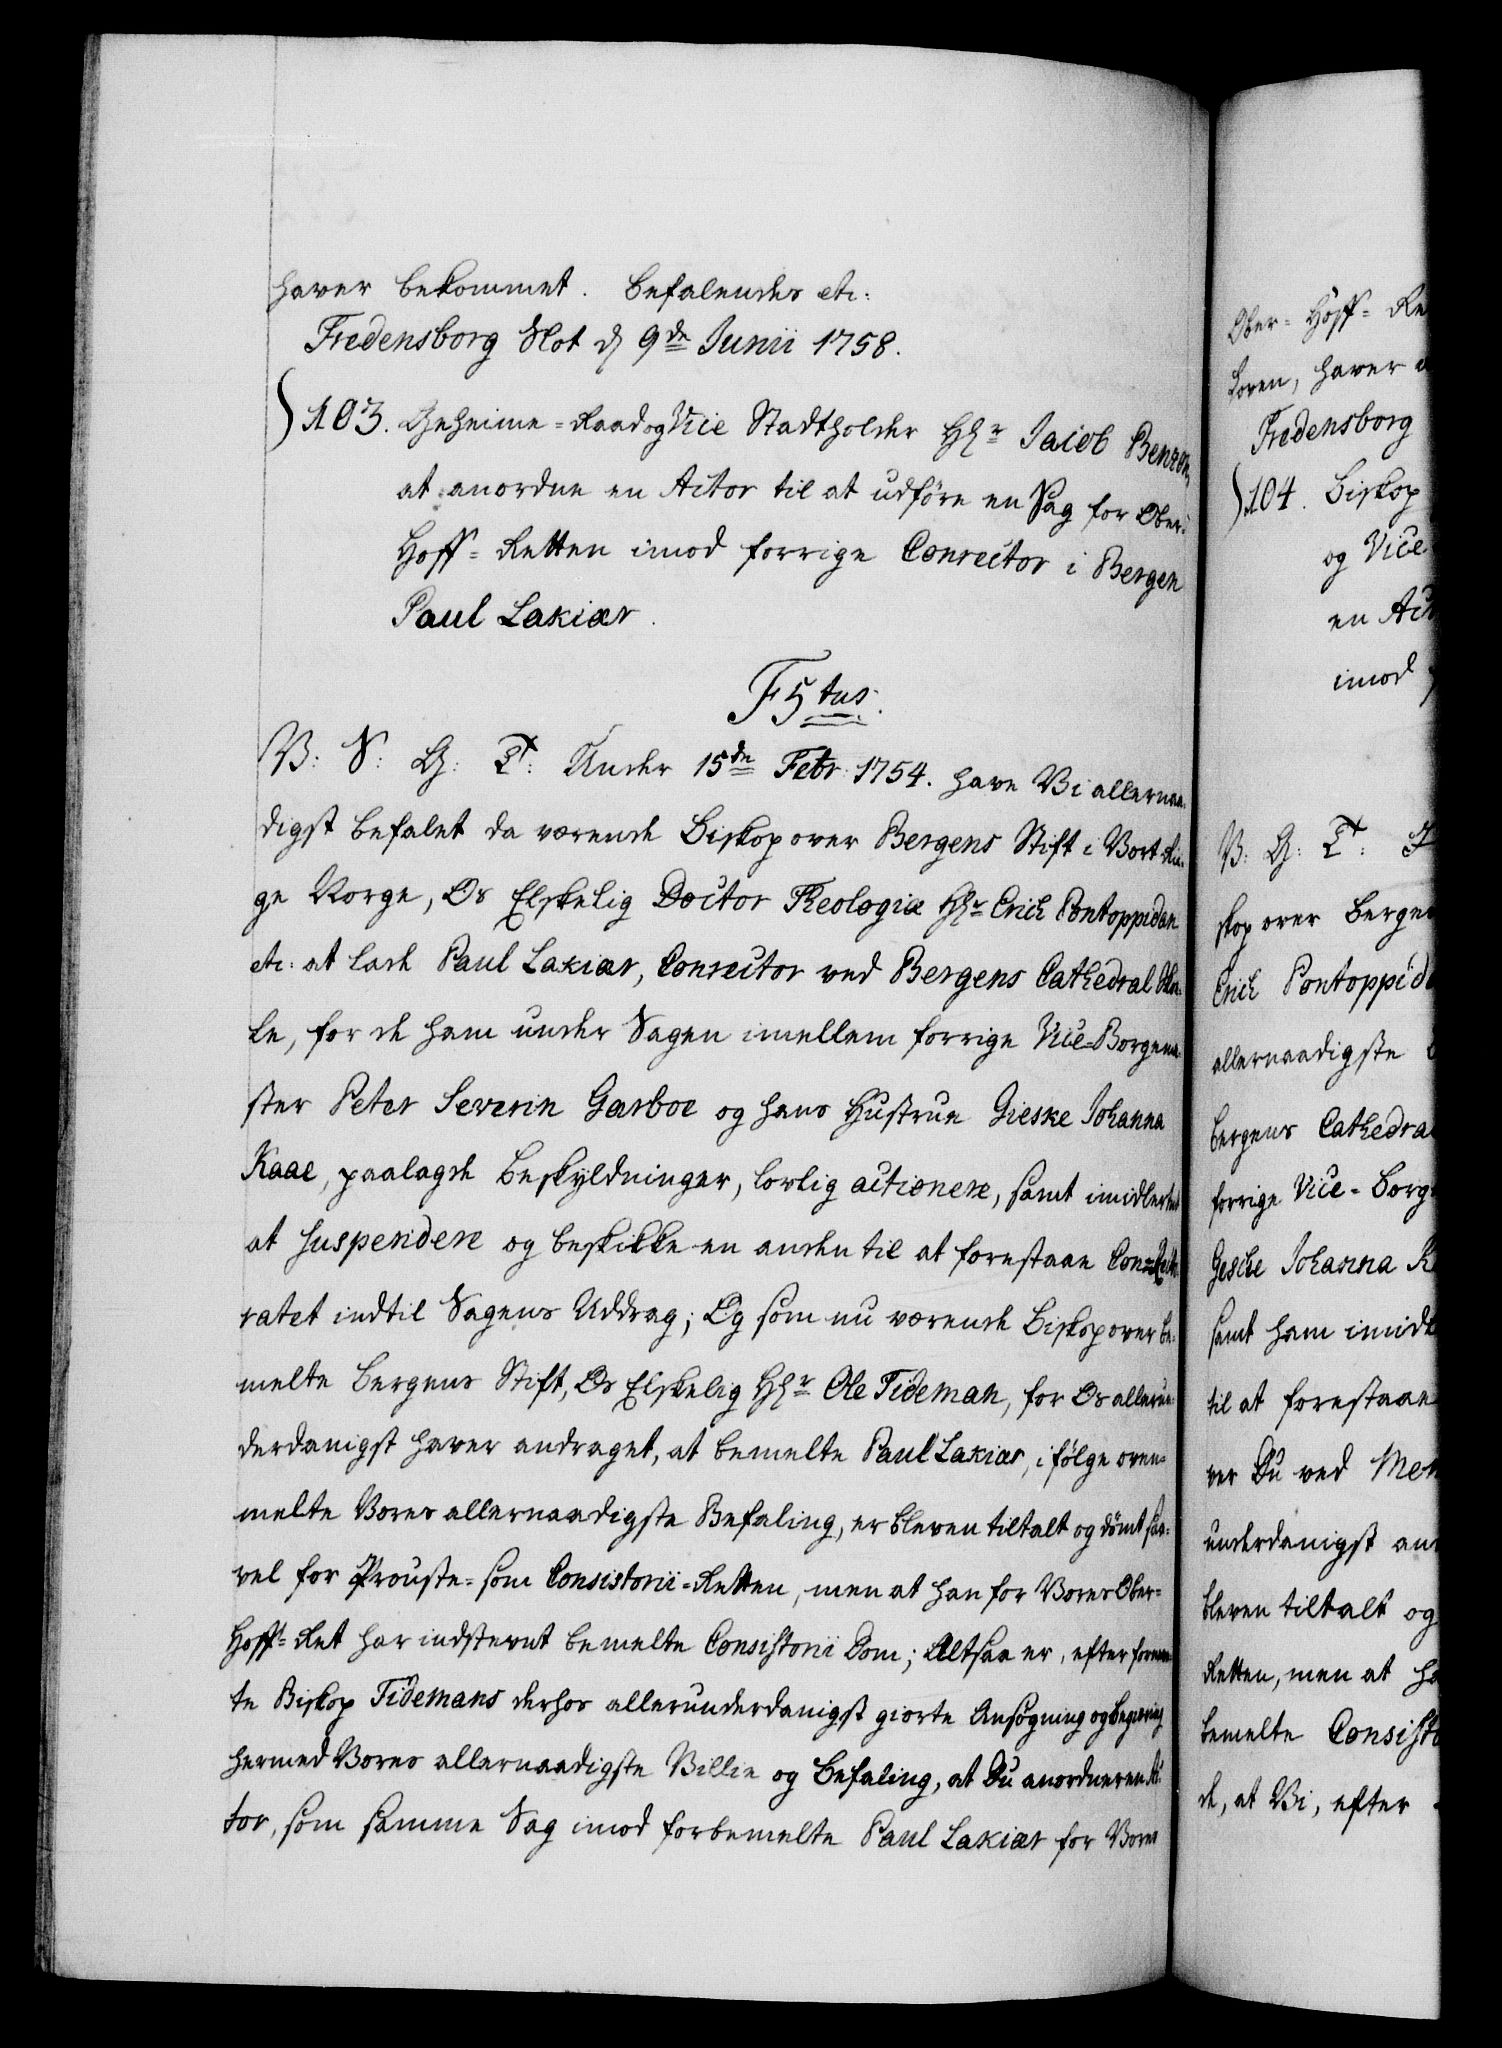 haver bekommet. Befalendes etc:
Fredensborg Slot d 9de Junii 1758.
103. Geheime-Raad og Vice Stadtholder Hr Jacob Benzon,
at anordne en Actor til at udføre en Sag for Ober-
Hoff-Retten imod forrige Conrector i Bergen
Paul Lakiær.
F5tus.
V: S: G: T: Under 15de Febr: 1754. have Vi allernaa-
digst befalet da værende Biskop over Bergens Stift i Vort Rii-
ge Norge, Os Elskelig Doctor Theologiæ Hr Erich Pontoppidan
etc: at lade Paul Lakiær, Conrector ved Bergens Cathedral Sko-
le, for de ham under Sagen imellem forrige Vice-Borgeme-
ster Peter Severin Garboe og hans Hustrue Gieske Johanna
Kaae, paalagde Beskyldninger, lovlig actionere, samt imidlertid
at suspendere og beskikke en anden til at forestaae Con-Recto-
ratet indtil Sagens Uddrag; Og som nu værende Biskop over be-
melte Bergens Stift, Os Elskelig Hr Ole Tideman, for Os allerun-
derdanigst haver andraget, at bemelte Paul Lakiær, i følge oven-
melte Vores allernaadigste Befaling, er bleven tiltalt og dömt saa-
vel for Prouste- som Consistorii-Retten, men at han for Vores Ober-
Hoff-Ret har indstevnt bemelte Consistorii Dom; Altsaa er, efter formel-
te Biskop Tidemans derhos allerunderdanigst giorte Ansøgning og begiering
hermed Vores allernaadigste Villie og Befaling, at Du anordner en Ac-
tor, som samme Sag imod forbemelte Paul Lakiær for Vores
Ober-Hoff-Re
Loven, haver
Fredensborg
104. Biskop
og Vice-
en Act
imod
V: G: T:
skop over Bergen
Erich Pontoppida
allernaadigste
Bergens Cathedral
forrige Vice-Borg
Gesche Johanna K
samt ham imidl
til at forestaae
ver Du ved Mem
underdanigst an
bleven tiltalt og
Retten, men at ha
bemelte Consisto
de, at Vi, efter